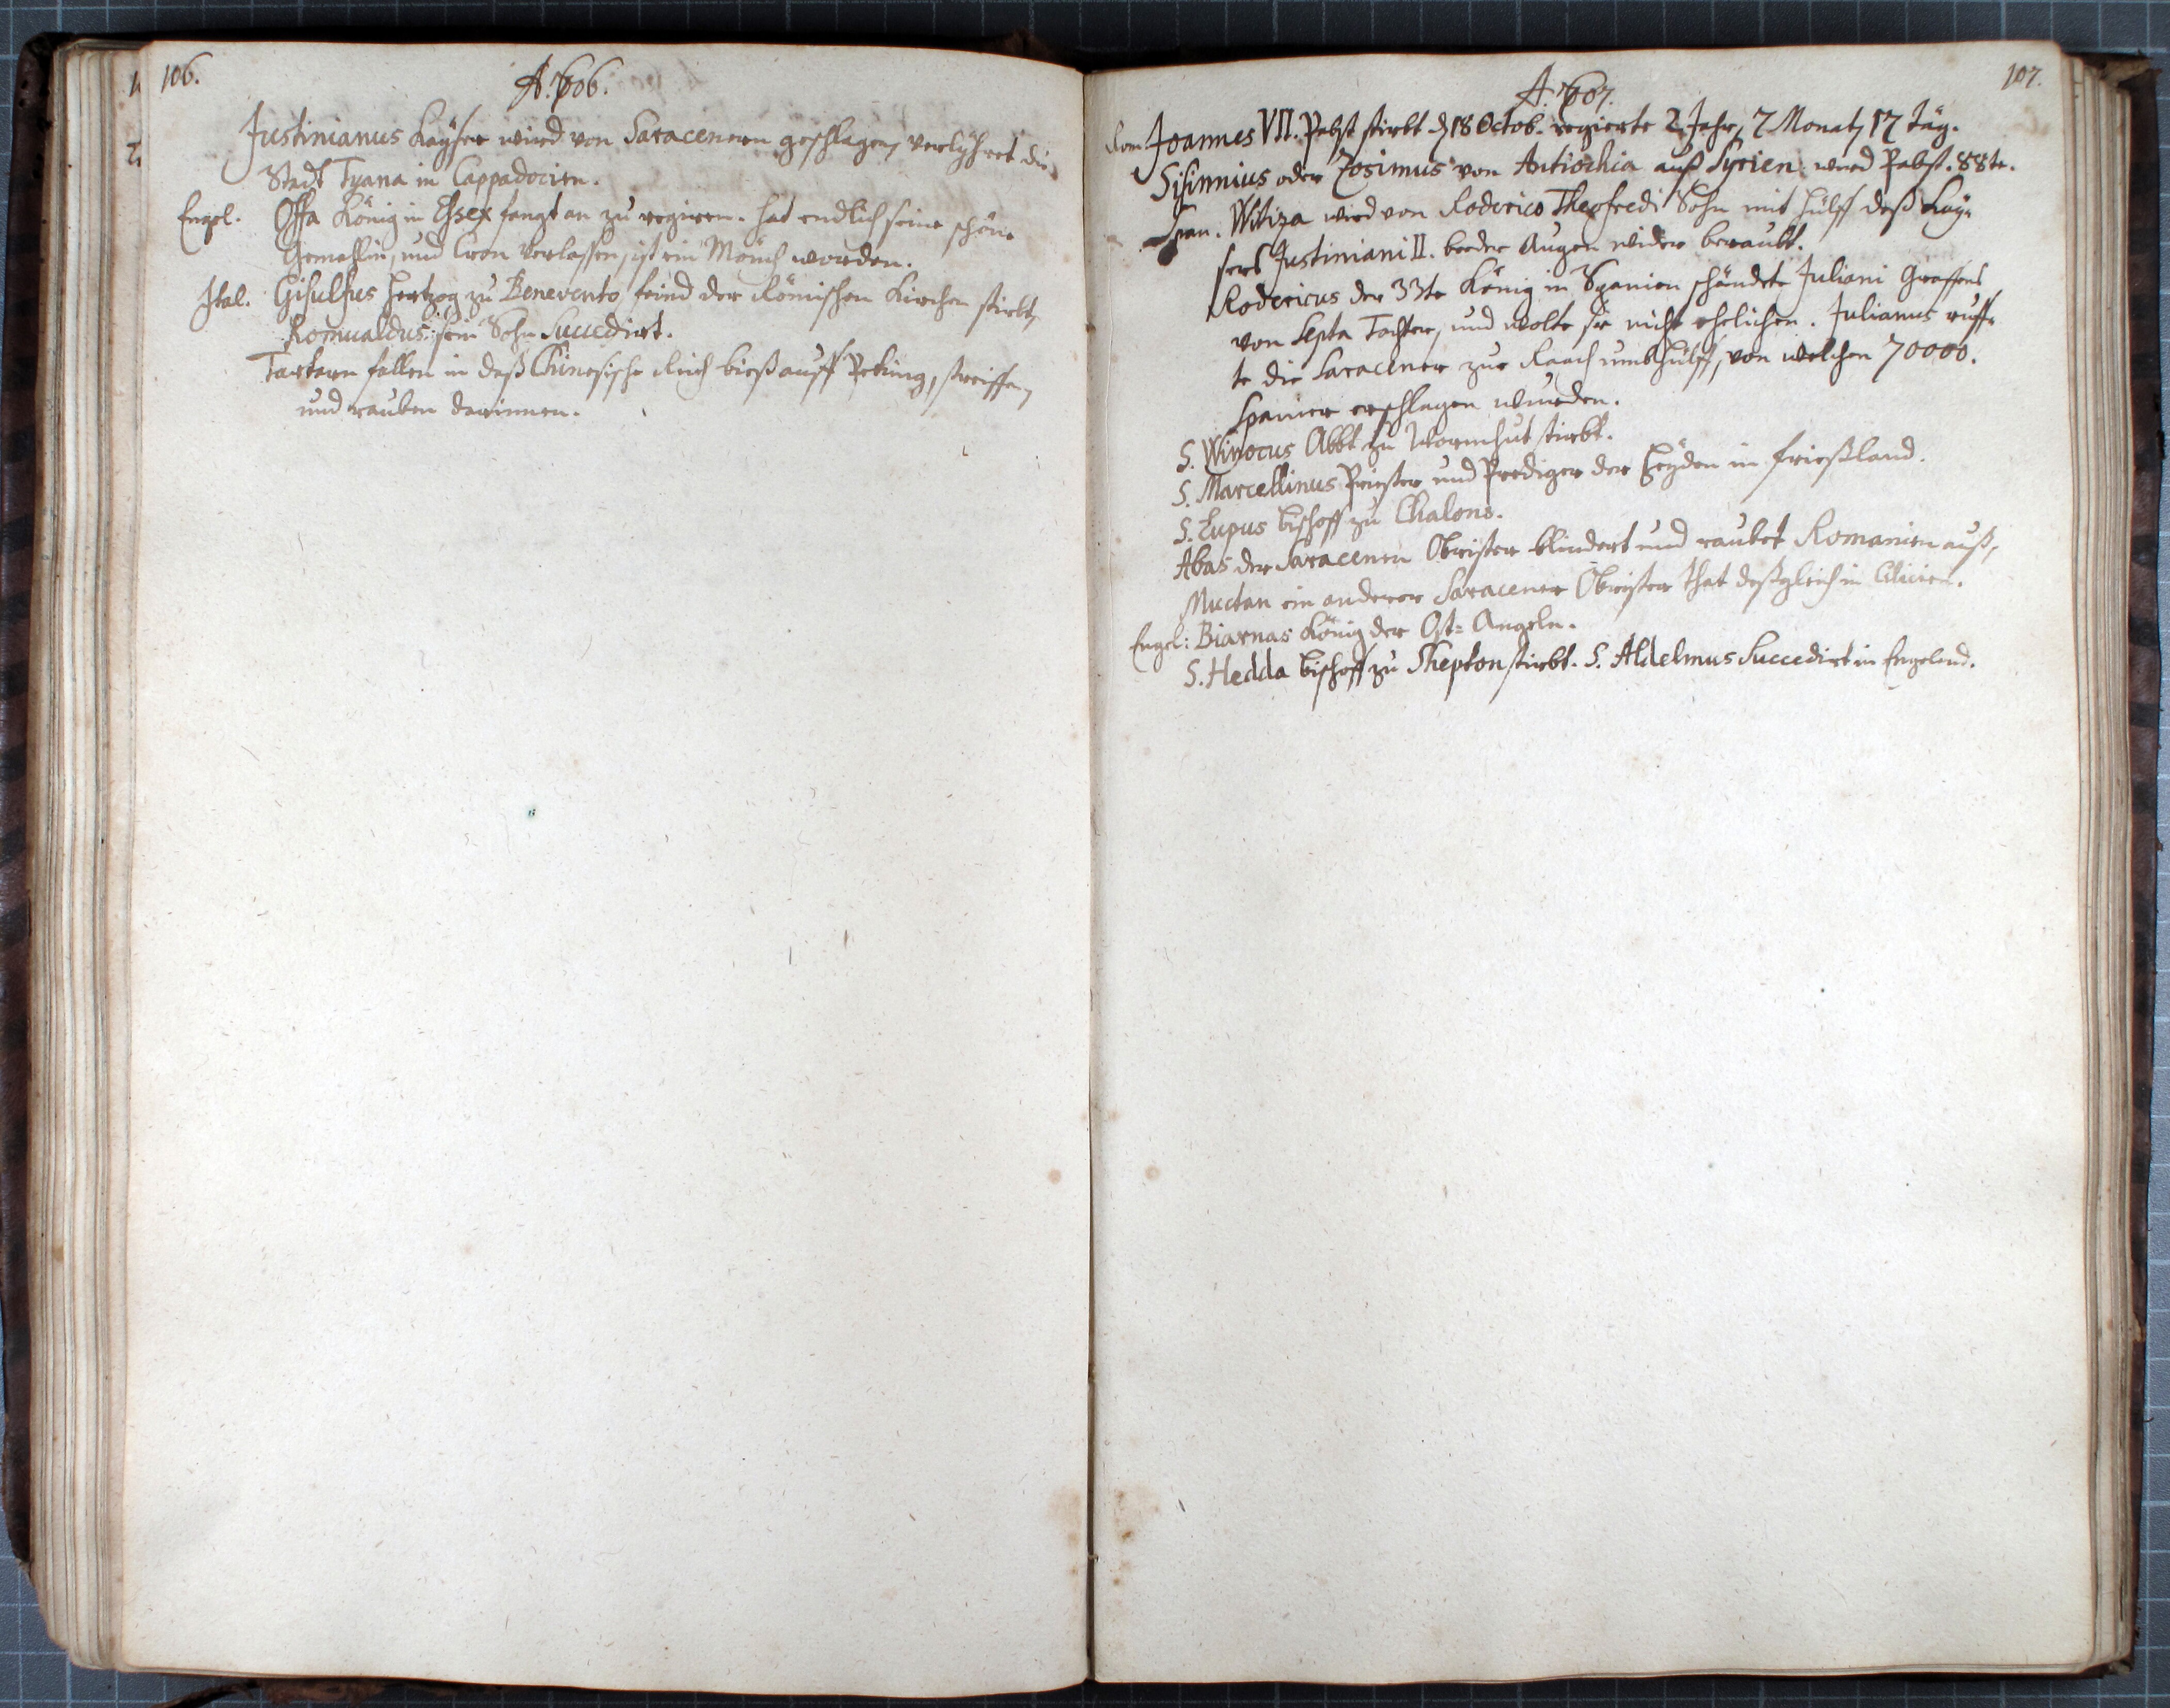 106.
A. 706.
Justinianus Kayser wird von Saracenern geschlagen, verlÿhret die
Stadt Tyana in Cappadocien.
Engel. Offa König in Essex fangt an zu regieren. hat endlich seine schöne
Gemahlin, und Cron verlassen, ist ein Mönch worden.
Ital. Gisulfus Hertzog zu Benevento feind der Römischen Kirchen stirbt,
Romualdus: sein Sohn Succedirt.
Tartarn fallen in daß Chinesische Reich bieß auff Peking, streiffen,
und rauben darinnen.
107.
A. 707.
Rom Joannes VII. Pabst stirbt d 18 Octob. regierte 2 Jahr, 7 Monat, 17 Täg.
Sisinnius oder Zosimus von Antiochia auß Syrien wird Pabst. 88te.
Span. Witiza wird von Roderico Theofredi Sohn mit hülff deß Kaÿ=
sers Justiniani II. beeder Augen wider beraubt.
Rodericus der 33te König in Spanien schändete Juliani Graffens
von Septa Tochter, und wolte sie nicht ehelichen. Julianus ruff=
te die Saracener zur Raach umb hülff, von welchen 70000.
Spanier erschlagen wurden.
S. Winocus Abbt zu Wormhut stirbt.
S. Marcellinus Priester und Prediger der Heÿden in frießland.
S. Lupus bischoff zu Chalons.
Abas der Saracenen Obrister blindert und raubet Romanien auß,
Muctan ein anderer Saracener Obrister that deßgleich in Cilicien.
Engel: Biarnas König der Ost= Angeln.
S. Hedda bischoff zu Shepton stirbt. S. Aldelmus Succedirt in Engeland.